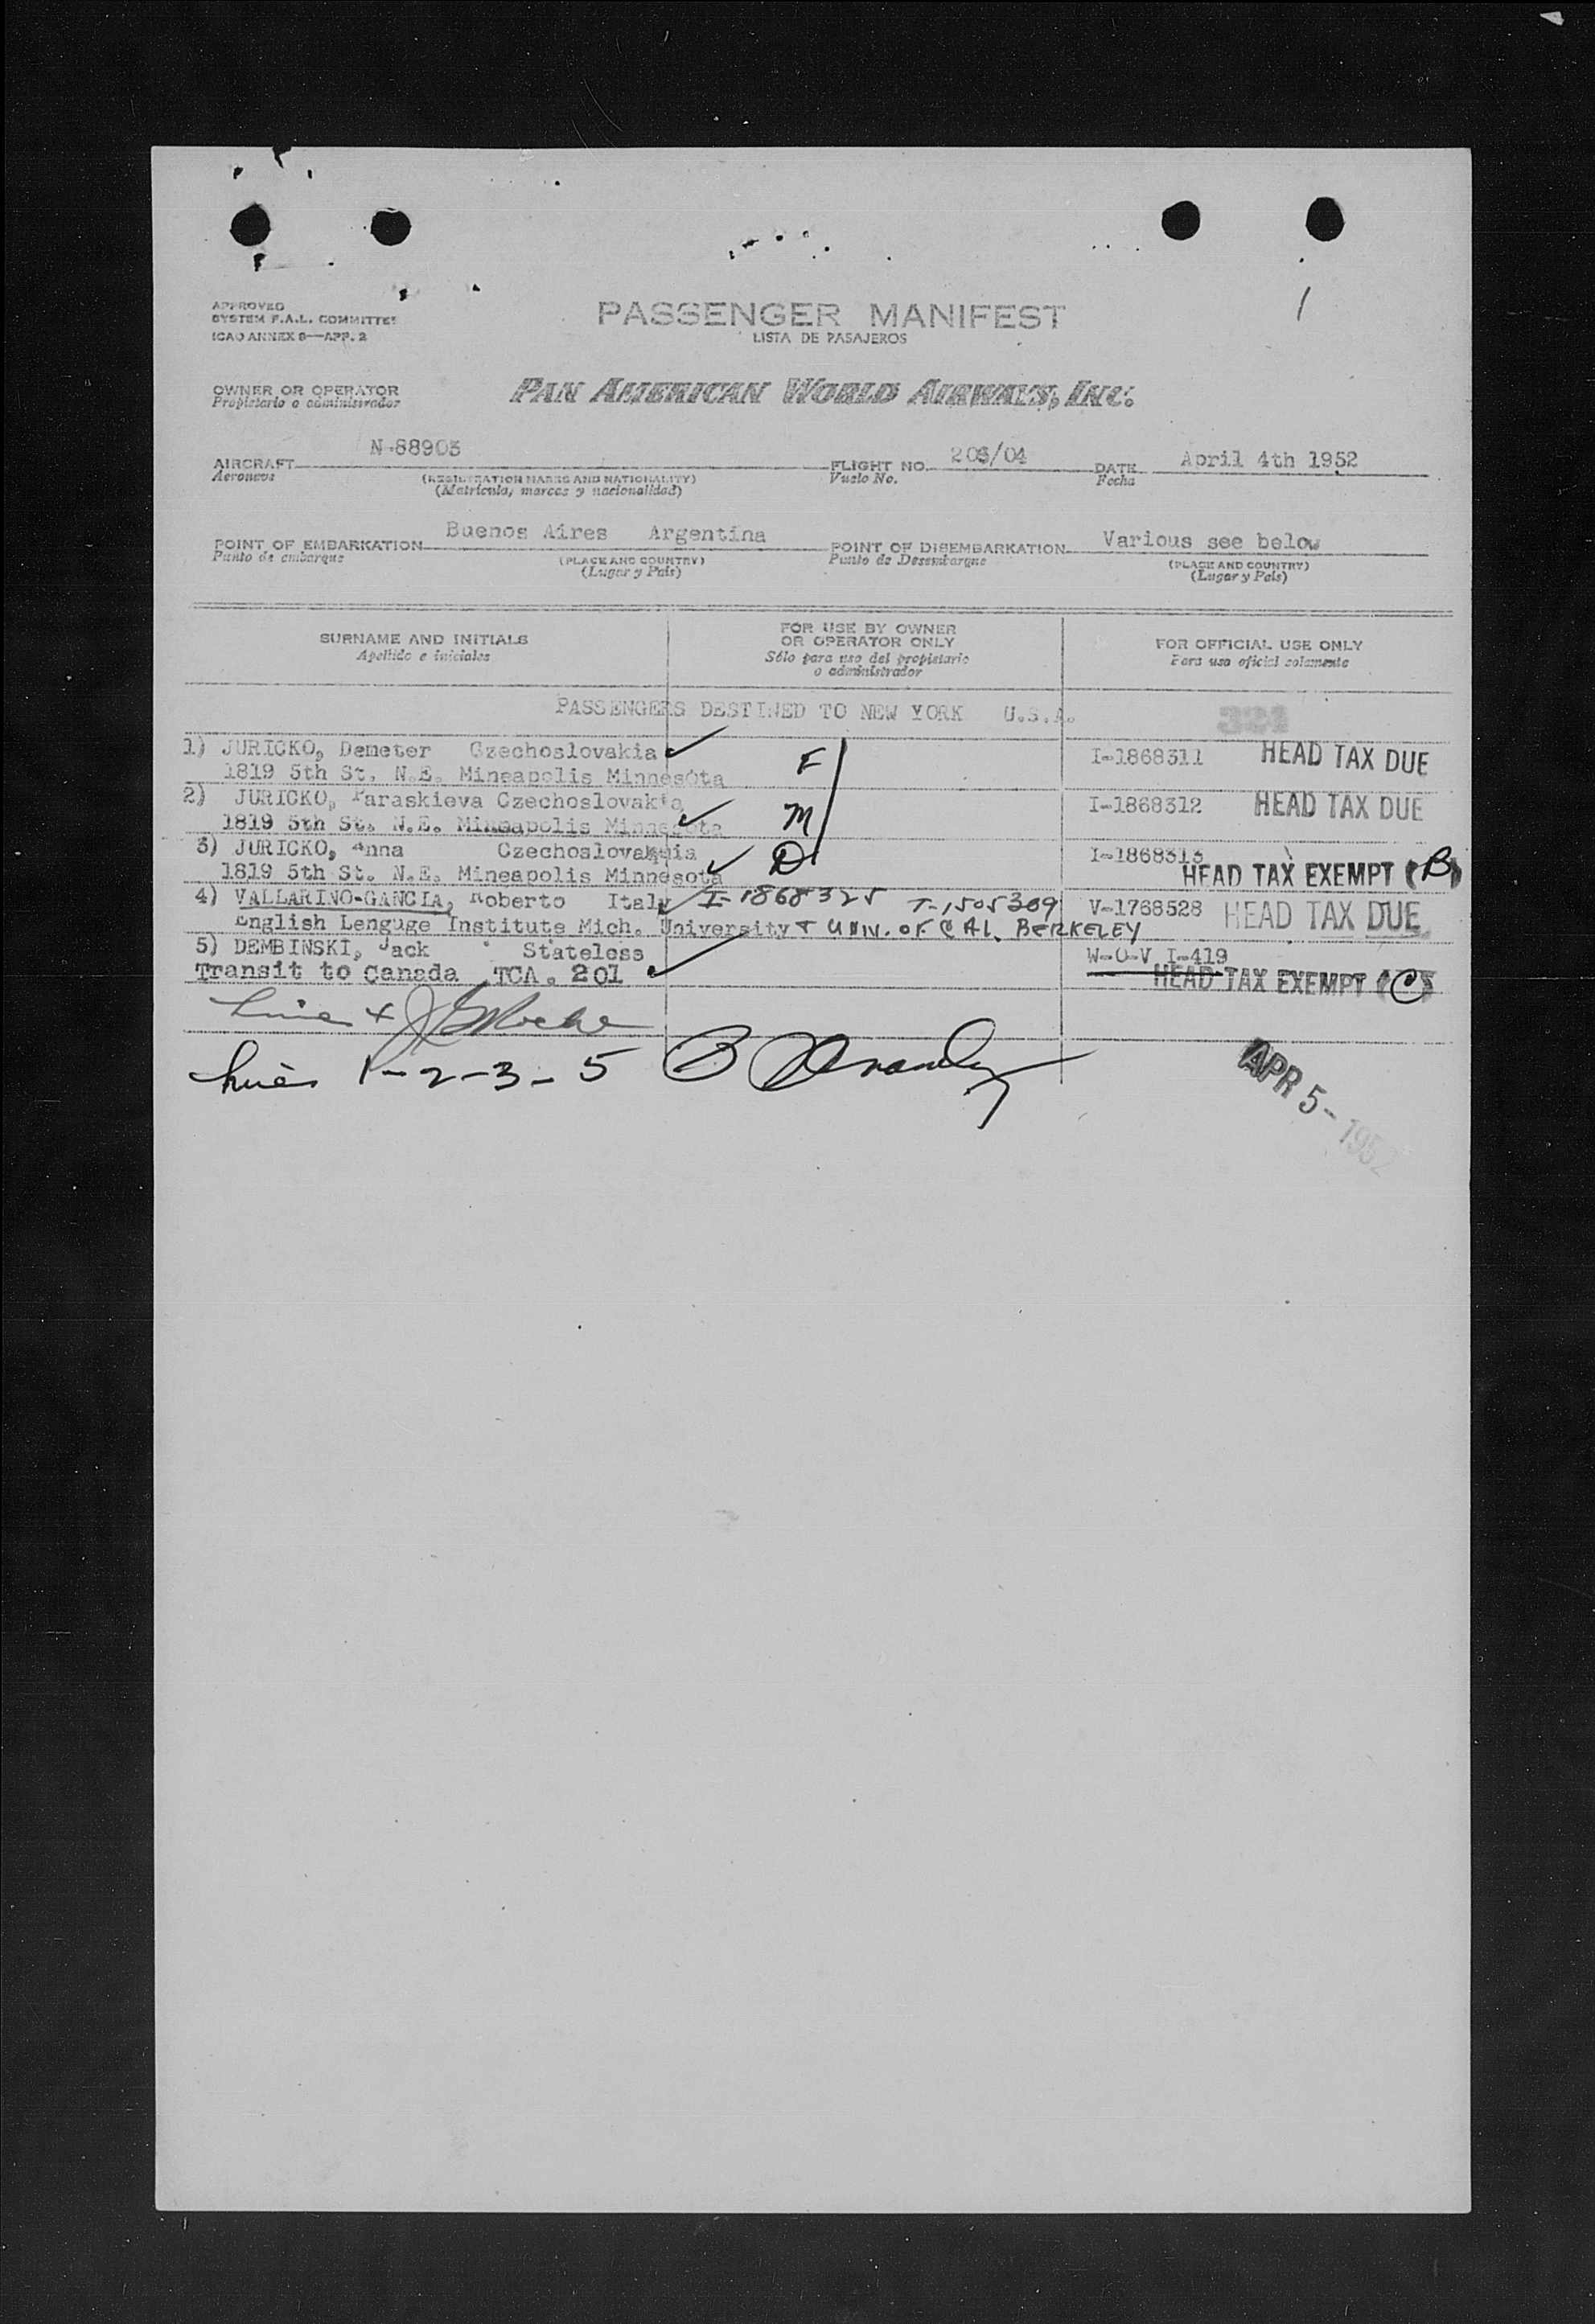 1
APPROVED
SYSTEM F.A.L. COMMITTEE
ICAO ANNEX 9—APP. 2
PASSENGER MANIFEST
LISTA DE PASAJEROS
OWNER OR OPERATOR
Propietario o administrador
PAN AMERICAN WORLD AIRWAYS, INC.
AIRCRAFT N-88903
Aeronave
(REGISTRATION MARKS AND NATIONALITY)
(Matrícula, marcas y nacionalidad)
FLIGHT NO. 203/04
Vuelo No.
DATE April 4th 1952
Fecha
POINT OF EMBARKATION Buenos Aires Argentina
Punto de embarque
(PLACE AND COUNTRY)
(Lugar y País)
POINT OF DISEMBARKATION Various see below
Punto de Desembarque
(PLACE AND COUNTRY)
(Lugar y País)
SURNAME AND INITIALS
Apellido e iniciales
FOR USE BY OWNER
OR OPERATOR ONLY
Sólo para uso del propietario
o administrador
FOR OFFICIAL USE ONLY
Para uso oficial solamente
PASSENGERS DESTINED TO NEW YORK U.S.A.
1) JURICKO, Demeter Czechoslovakia F I-1868311 HEAD TAX DUE
1819 5th St. N.E. Mineapolis Minnesota
2) JURICKO, Paraskieva Czechoslovakia M I-1868312 HEAD TAX DUE
1819 5th St. N.E. Mineapolis Minnesota
3) JURICKO, Anna Czechoslovakia D I-1868313
1819 5th St. N.E. Mineapolis Minnesota HEAD TAX EXEMPT (B)
4) VALLARINO-GANCIA, Roberto Italy I-1868325 T-1505309 V-1768528 HEAD TAX DUE
English Lenguge Institute Mich. University & UNIV. OF CAL. BERKELEY
5) DEMBINSKI, Jack Stateless W-O-V I-419
Transit to Canada TCA. 201 HEAD TAX EXEMPT (C)
Line 4
Lines 1-2-3-5 B
APR 5-1952